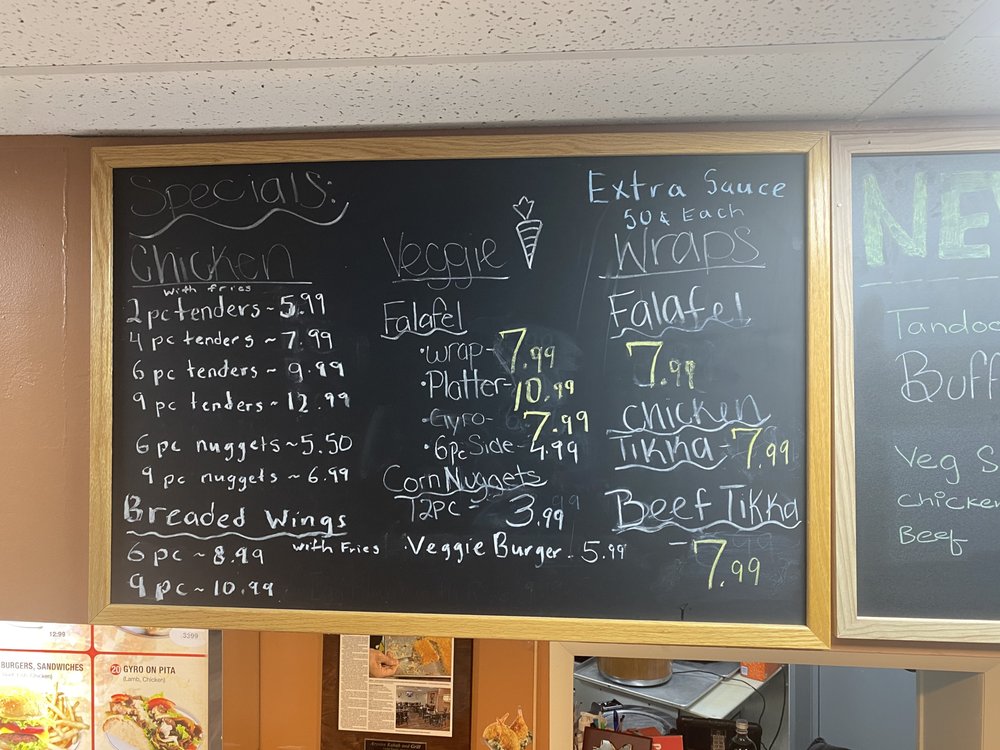 Specials:
Chicken
with fries
2 pc tenders ~ 5.99
4 pc tenders ~ 7.99
6 pc tenders ~ 9.99
9 pc tenders ~ 12.99
6 pc nuggets ~ 5.50
9 pc nuggets ~ 6.99
Breaded Wings
with Fries
6 pc ~ 8.99
9 pc ~ 10.99
Veggie
Falafel
• wrap - 7.99
• Platter - 10.99
• Gyro - 7.99
• 6pc Side - 4.99
Corn Nuggets
12pc - 3.99
• Veggie Burger - 5.99
Extra Sauce
50¢ Each
Wraps
Falafel
7.99
Chicken
Tikka - 7.99
Beef Tikka
- 7.99
NE
Tandoo
Buff
Veg S
Chicken
Beef
12.99
BURGERS, SANDWICHES
20 GYRO ON PITA
(Lamb, Chicken)